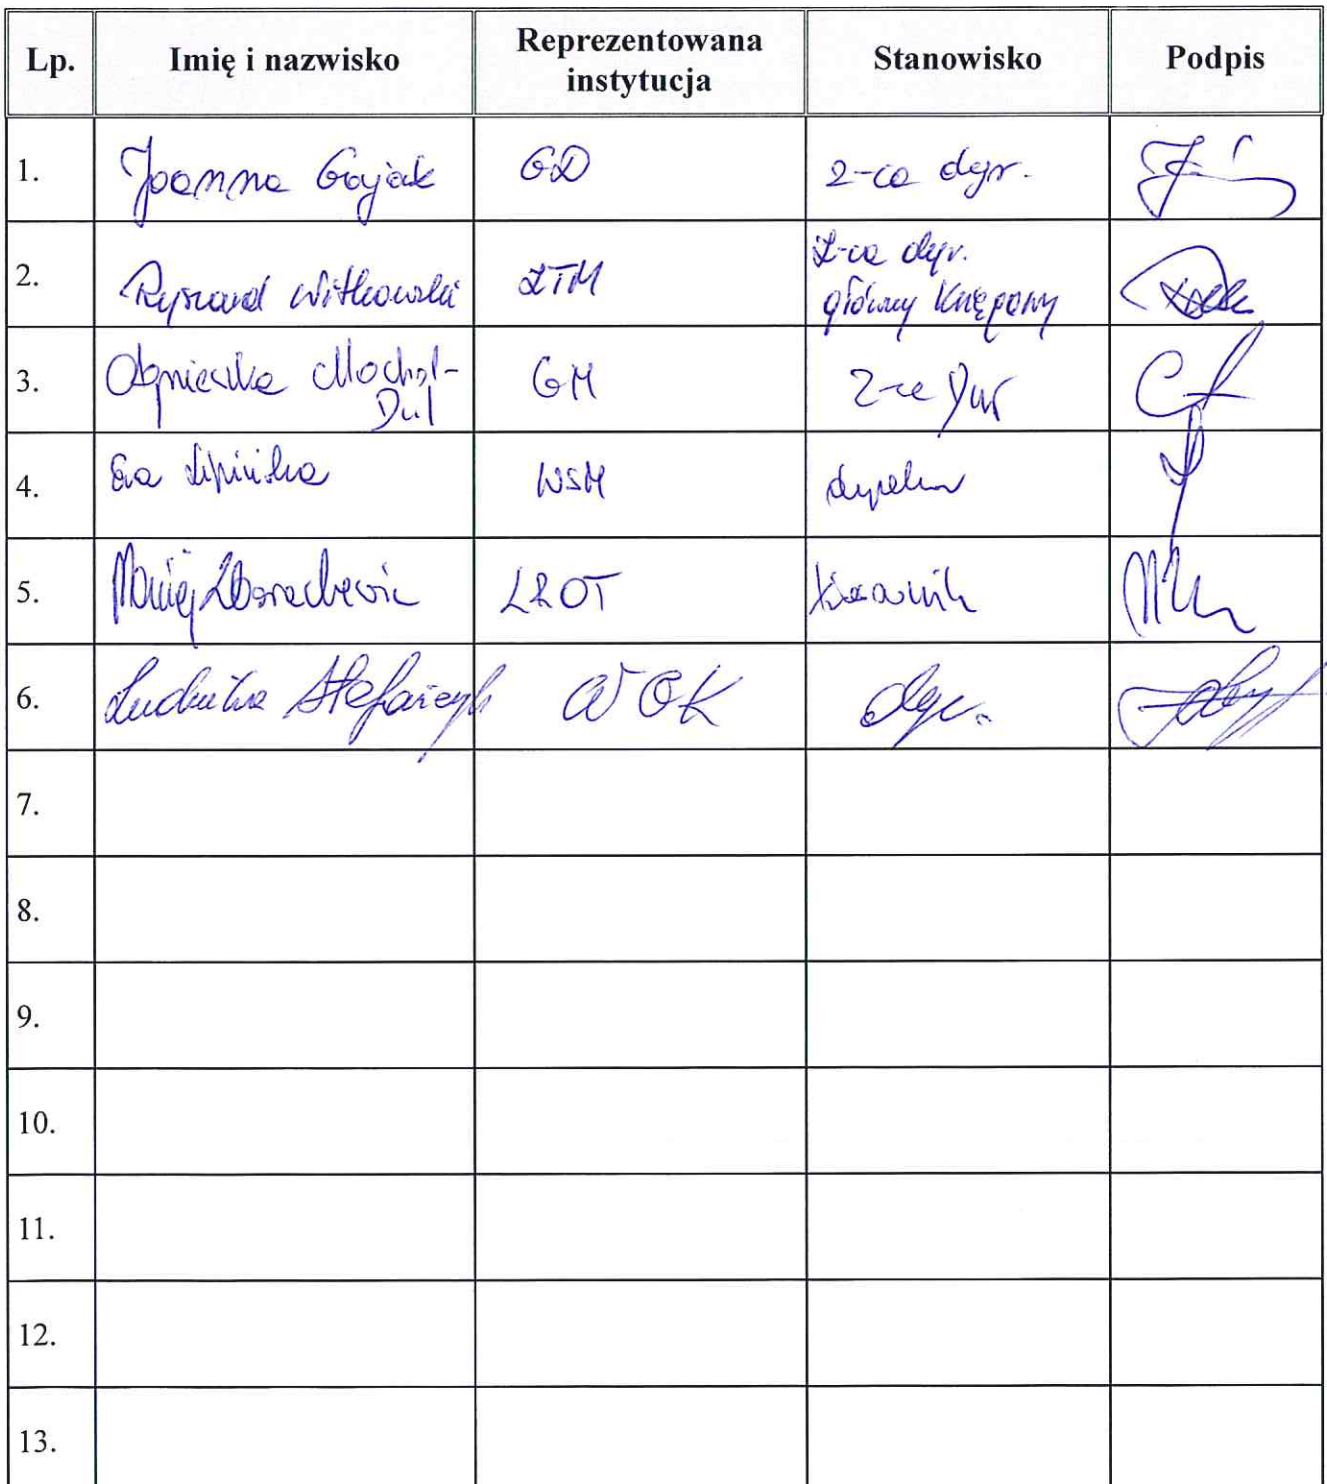 Lp. Imię i nazwisko Reprezentowana instytucja Stanowisko Podpis
1. Joanna Gajak GD z-ca dyr.
2. Ryszard Witkowski ŁTM Z-ca dyr. główny księgowy
3. Agnieszka Mochol-Dul GM z-ca Dyr
4. Ewa Lipińska WSM dyrektor
5. Maciej LROT kierownik
6. Ludwika Stefańczyk WOK dyr.
7.
8.
9.
10.
11.
12.
13.